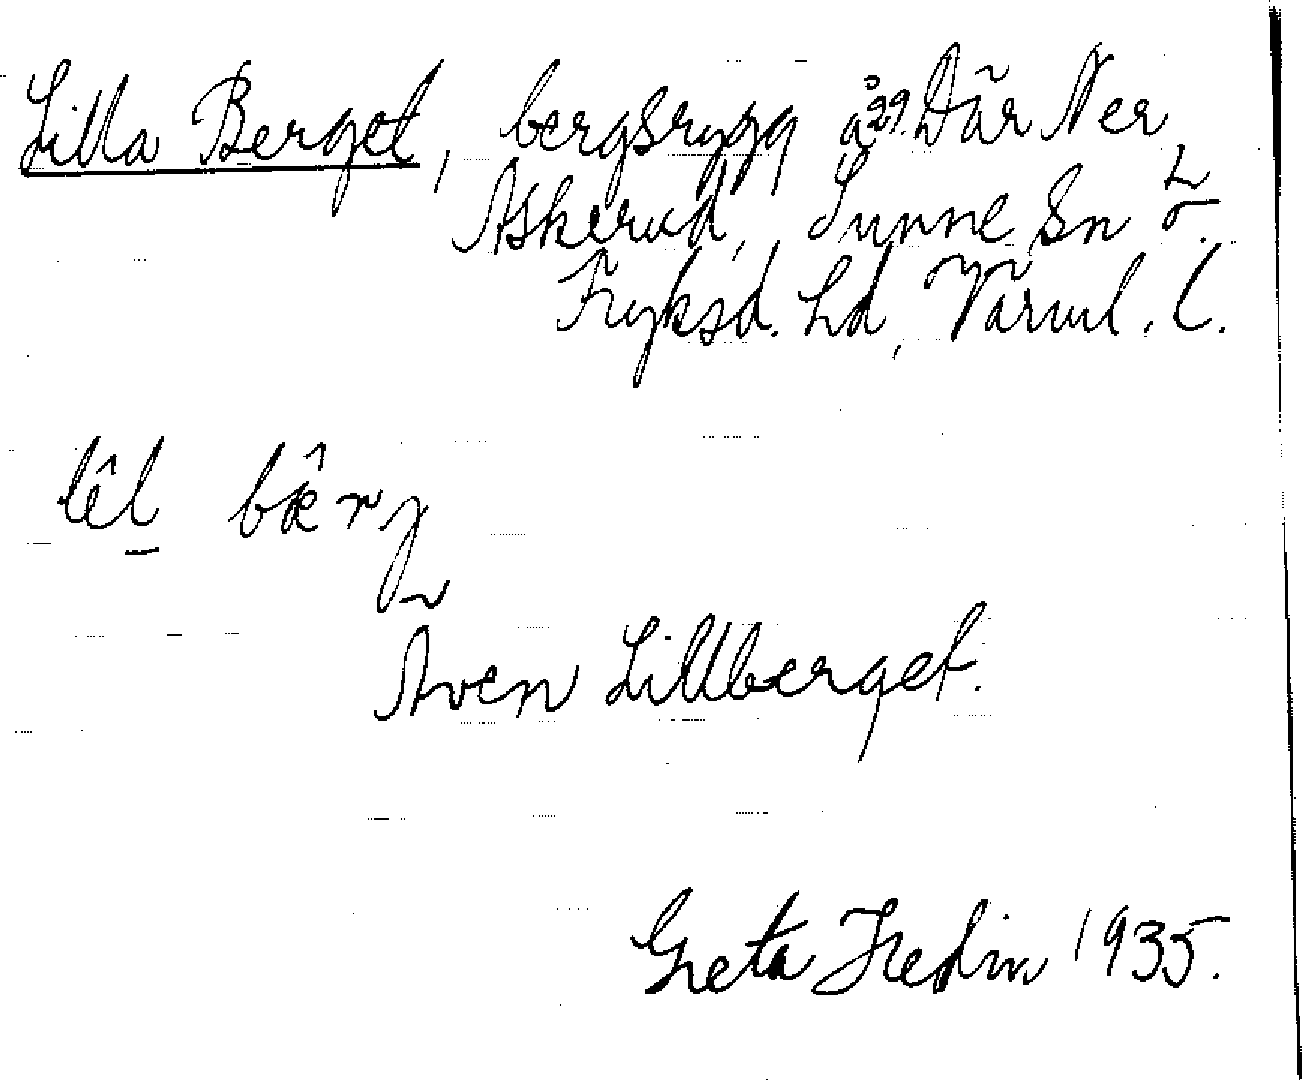 Lilla Berget, bergsrygg å ägg. Där Ner
Askerud, Sunne Sn
Fryksd. hd, Värml. l.
lêl bærg
Även Lillberget.
Greta Hedin 1935.